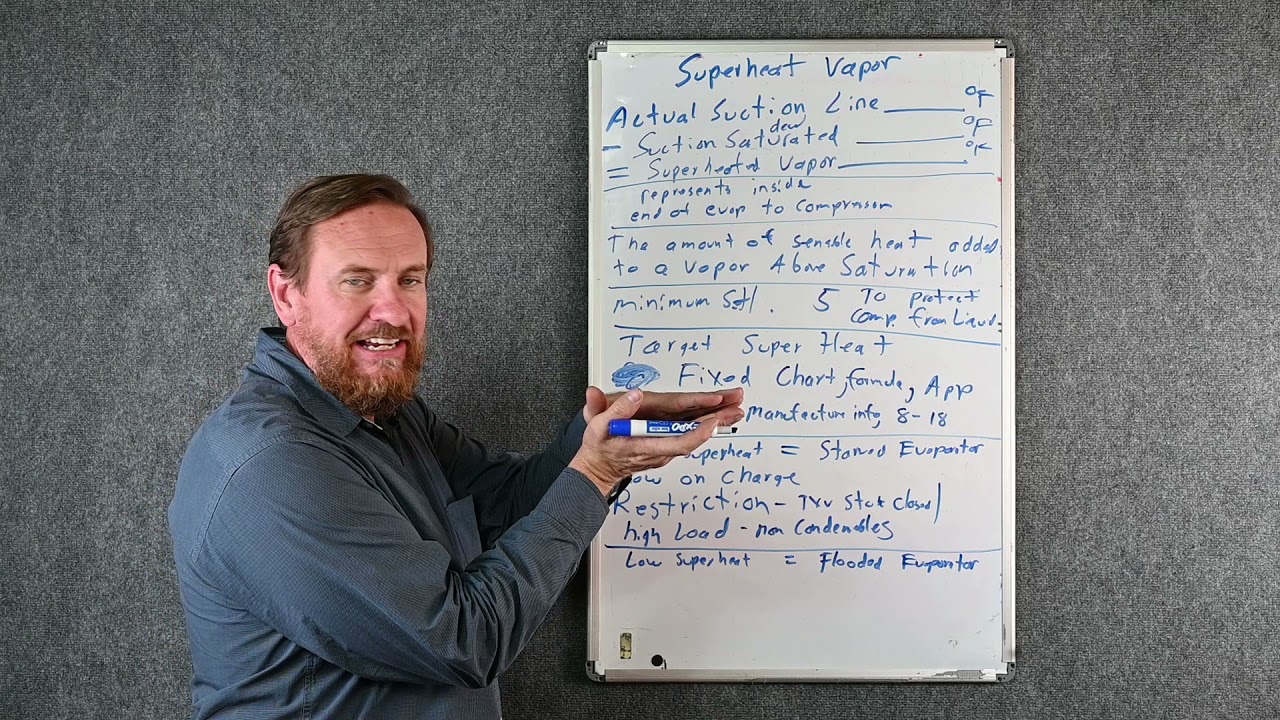 Superheat Vapor
Actual Suction Line ______ °F
dew
- Suction Saturated ______ °F
= Superheated Vapor ______ °F
represents inside
end of evap to Compressor
The amount of sensable heat added
to a vapor Above Saturation
minimum S.H. 5 To protect
Comp. from Liquid
Target Super Heat
Fixed Chart, formula, App
manufacture info, 8-18
superheat = Starved Evaporator
Low on Charge
Restriction - TXV Stuck Closed/
high Load - non Condensables
Low superheat = Flooded Evaporator
EXPO